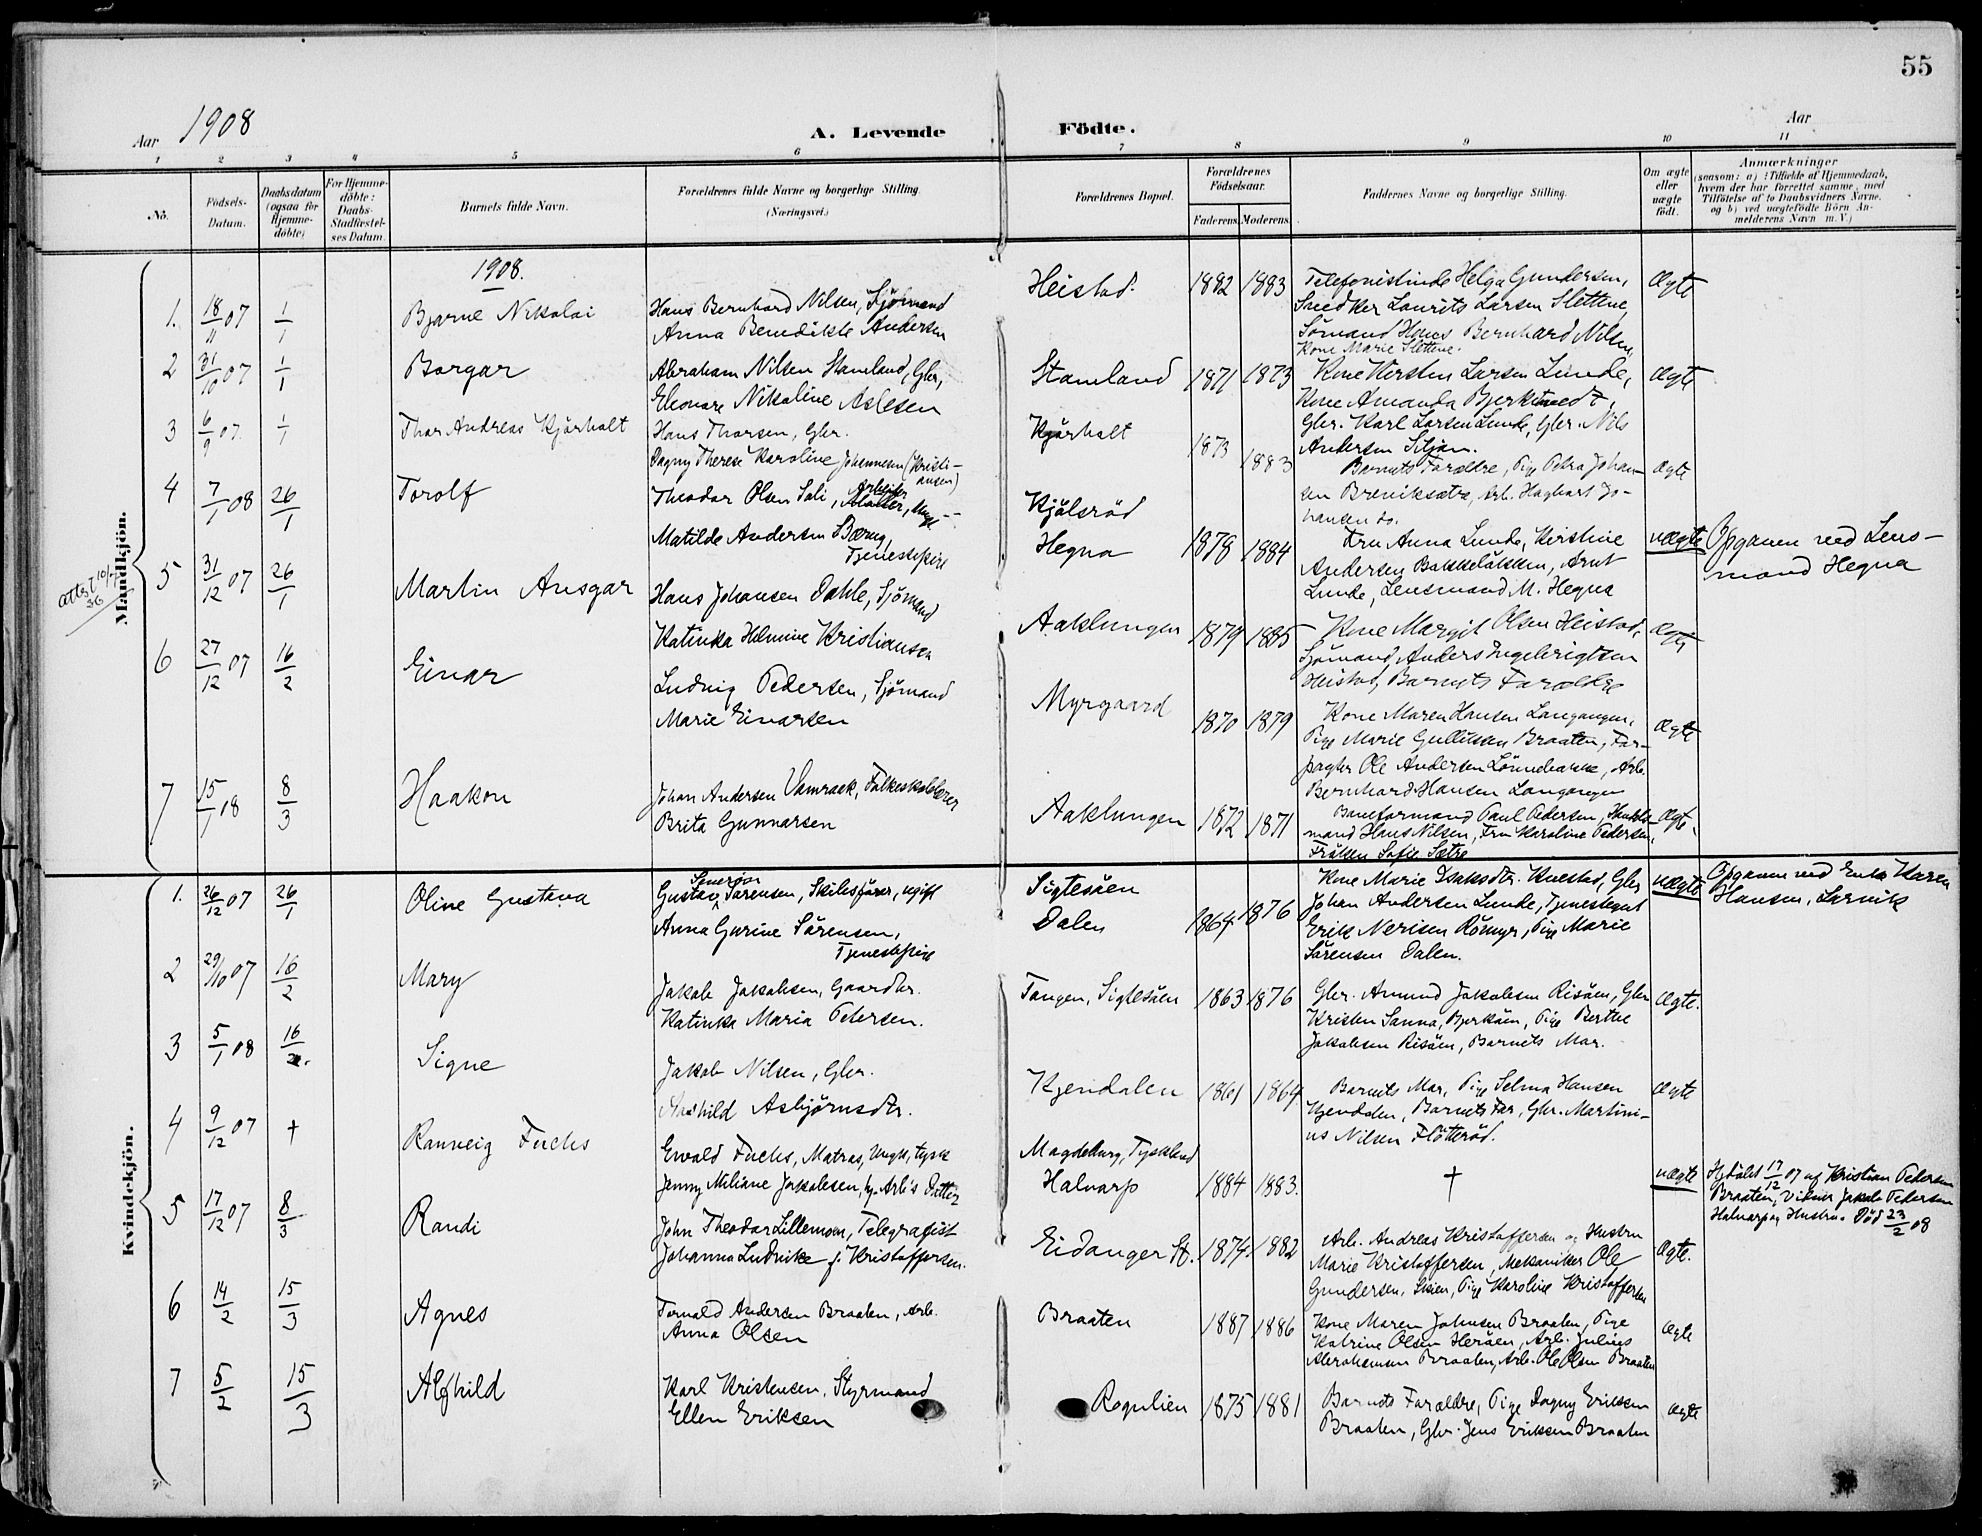 55
Aar 1908
A. Levende Födte.
Aar
1 2 3 4 5 6 7 8 9 10 11
No.
Födsels-
Datum.
Daabsdatum
(ogsaa for
Hjemme-
döbte)
For Hjemme-
döbte:
Daabs-
Stadfæstel-
ses Datum.
Barnets fulde Navn.
Forældrenes fulde Navne og borgerlige Stilling.
(Næringsvei.)
Forældrenes Bopæl.
Forældrenes
Födselsaar.
Faderens. Moderens.
Faddernes Navne og borgerlige Stilling.
Om ægte
eller
uægte
födt.
Anmærkninger
(saasom: a) i Tilfælde af Hjemmedaab,
hvem der har forrettet samme, med
Tilföielse af to Daabsvidners Navne,
og b) ved uægtefödte Börn An-
melderens Navn m. V.)
Mandkjön.
1908.
1. 18/11 07 1/1 Bjarne Nikolai
Hans Bernhard Nilsen, Sjömand
Anna Benedikte Andersen
Heistad. 1882 1883
Telefonistinde Helga Gundersen,
Snedker Laurits Larsen Slettene,
Sömand Hans Bernhard Nilsen,
Kone Marie Slettene.
Ægte
2 31/10 07 1/1 Borgar
Abraham Nilsen Stamland, Gbr,
Eleonore Nikoline Aslesen
Stamland 1871 1873
Kone Kirsten Larsen Lunde,
Kone Amanda Bjerketvedt,
Gbr. Karl Larsen Lunde, Gbr. Nils
Andersen Siljan.
Ægte
3 6/9 07. 1/1 Thor Andreas Kjörholt
Hans Thorsen, Gbr.
Dagny Therese Karoline Johannesen (Kristi-
ansen)
Kjörholt 1873 1883
Barnets Forældre, Pige Petra Johan-
sen Breviksætre, Arb. Hagbart Jo-
hansen do.
Ægte
4 7/1 08 26/1 Torolf
Theodor Olsen Soli, Arbeider, Ungk.
Matilde Andersen Bærug,
Tjenestepige
Kjölsröd
Hegna 1878 1884
Fru Anna Lunde, Kirstine
Andersen Bakkeløkken, Arnt
Lunde, Lensmand M. Hegna
uægte
Opgaven ved Lens-
mand Hegna
5 31/12 07 26/1 Martin Ansgar
Hans Johansen Dahle, Sjömand
Katinka Helmine Kristiansen
Aaklungen 1879 1885
Kone Margit Olsen Heistad,
Sjömand Anders Ingebrigtsen
Heistad, Barnets Forældre
Ægte
6 27/12 07 16/2 Einar
Ludvig Pedersen, Sjömand
Marie Einarsen
Myrgaard 1870 1879
Kone Maren Hansen Langangen,
Pige Marie Gulliksen Braaten, For-
pagter Ole Andersen Lönnebakke, Arb.
Bernhard Hansen Langangen
Ægte
7 15/1 08 8/3 Haakon
Johan Andersen Vamraak, Folkeskolelærer
Brita Gunnarsen
Aaklungen 1872 1871
Baneformand Paul Pedersen, Handels-
mand Hans Nilsen, Fru Karoline Pedersen,
Fröken Sofie Sætre
Ægte.
Kvindekjön.
1. 26/12 07 26/1 Oline Gustava
Gustav Severin Sörensen, Skibsförer, ugift
Anna Gurine Sörensen,
Tjenestepige
Sigtesöen
Dalen 1864 1876
Kone Marie Isaksdtr. Kvestad, Gbr
Johan Andersen Lunde, Tjenestegut
Erik Nerisen Römyr, Pige Marie
Sörensen Dalen.
uægte
Opgaven ved Enke Karen
Hansen, Larvik
2 29/10 07 16/2 Mary
Jakob Jakobsen, Gaardbr.
Katinka Maria Petersen.
Tangen, Sigtesöen 1863 1876
Gbr. Amund Jakobsen Risöen, Gbr
Kristen Sanna, Bjerköen, Pige Berthe
Jakobsen Risöen, Barnets Mor.
Ægte.
3 5/1 08 16/2. Signe
Jakob Nilsen, Gbr.
Aashild Asbjörnsdtr.
Kjendalen 1861 1864
Barnets Mor, Pige Selma Hansen
Kjendalen, Barnets Far, Gbr. Martini-
us Nilsen Flötteröd.
Ægte
4 9/12 07 + Ranveig Fuchs
Ewald Fuchs, Matros, Ungk, tysk
Jenny Miliane Jakobsen, Arb's Datter
Magdeburg, Tyskland
Halvarp 1884 1883.
+
uægte
Hjdöbt 17/12 07 af Kristian Pedersen
Braaten, Vidner Jakob Pedersen
Halvarp og Hustru. Död 23/2 08
5 17/12 07 8/3 Randi
John Theodor Lillemoen, Telegrafist
Johanna Ludvikke f. Kristoffersen.
Eidanger St. 1874. 1882
Arb. Andreas Kristoffersen og Hustru
Marie Kristoffersen, Mekaniker Ole
Gundersen, Skien, Pige Karoline Kristoffersen
Ægte.
6 14/2 15/3 Agnes
Torvald Andersen Braaten, Arb.
Anna Olsen
Braaten 1887 1886
Kone Maren Johnsen Braaten, Pige
Katrine Olsen Heröen, Arb. Julius
Abrahamsen Braaten, Arb. Ole Olsen Braaten
Ægte
7 5/2 15/3 Alfhild
Karl Kristensen, Styrmand
Ellen Eriksen
Rognlien 1875 1881
Barnets Forældre, Pige Dagny Eriksen
Braaten, Gbr. Jens Eriksen Braaten
Ægte